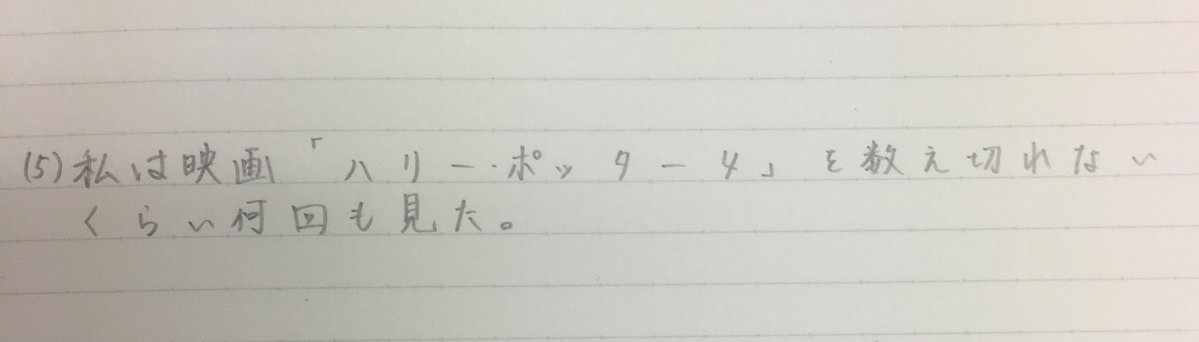 (5) 私は映画「ハリー・ポッター4」を数え切れない
くらい何回も見た。